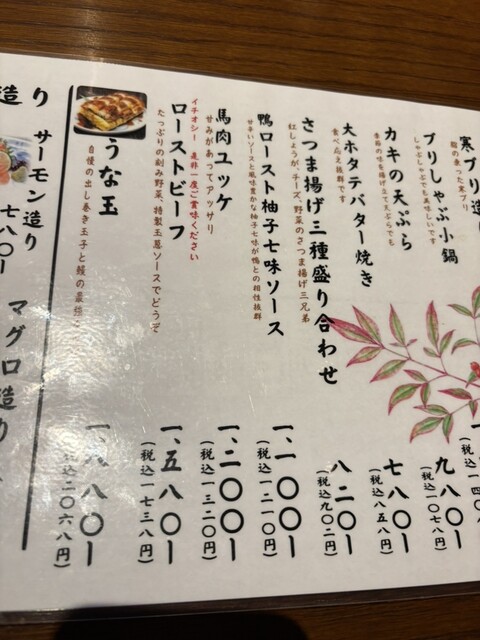 寒ブリ造
脂の乗った寒ブリ
一、
(税込一
ブリしゃぶ小鍋
しゃぶしゃぶでも美味しいです
九八〇ー
(税込一〇七八円)
カキの天ぷら
季節の味を揚げ立て天ぷらでも
七八〇ー
(税込八五八円)
大ホタテバター焼き
食べ応え抜群です
八二〇ー
(税込九〇二円)
さつま揚げ三種盛り合わせ
紅しょうが、チーズ、野菜のさつま揚げ三兄弟
鴨ロースト柚子七味ソース
甘辛いソースと風味豊かな柚子七味が鴨との相性抜群
一、一〇〇ー
(税込一二一〇円)
馬肉ユッケ
甘みがあってアッサリ
一、二〇〇ー
(税込一三二〇円)
イチオシー 是非一度ご賞味ください
ローストビーフ
たっぷりの刻み野菜、特製玉葱ソースでどうぞ
一、五八〇ー
(税込一七三八円)
うな玉
自慢の出し巻き玉子と鰻の最強
一、八八〇ー
(税込二〇六八円)
造り
サーモン造り
七八〇ー
マグロ造り